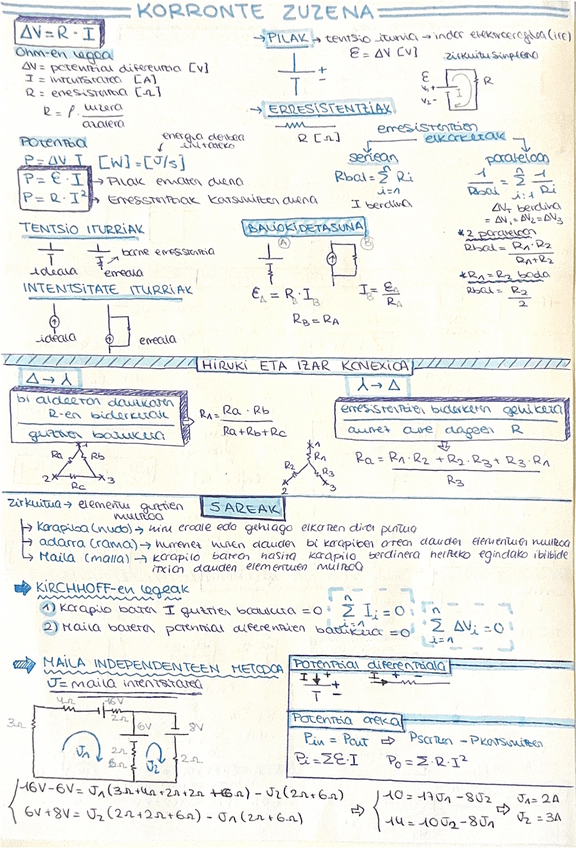 KORRONTE ZUZENA
ΔV = R · I
Ohm-en legea
ΔV = potentzial diferentzia [V]
I = intentsitatea [A]
R = erresistentzia [Ω]
R = ρ · luzera / azalera
Potentzia
energia denbora unitateko
P = ΔV · I [W] = [J/s]
P = ε · I → Pilak ematen duena
P = R · I² → Erresistentziak kontsumitzen duena
→ PILAK → tentsio iturria → indar elektroeragilea (iee)
ε = ΔV [V]
zirkuitu sinplea
ε
R
I
→ ERRESISTENTZIAK
R [Ω]
erresistentzien elkarketak
seriean
Rbal = Σ Ri
n
i=1
I berdina
paraleloan
1/Rbal = Σ 1/Ri
n
i=1
ΔVT berdina
= ΔV1 = ΔV2 = ΔV3
* 2 paraleloan
Rbal = R1 · R2 / R1 + R2
* R1 = R2 bada
Rbal = R2 / 2
TENTSIO ITURRIAK
ideala
erreala
barne erresistentzia
INTENTSITATE ITURRIAK
ideala
erreala
BALIOKIDETASUNA
A
B
εA = RB · IB
IB = εA / RA
RB = RA
HIRUKI ETA IZAR KONEXIOA
Δ → ⅄
bi aldeetan daukaten R-en biderketak
guztien batuketa
R1 = Ra · Rb / Ra + Rb + Rc
1
Ra
Rb
2
Rc
3
⅄ → Δ
erresistentzien biderketen guztira
aurrez aurre dagoen R
1
R1
R2
R3
2
3
Ra = R1 · R2 + R2 · R3 + R3 · R1 / R3
SAREAK
zirkuitua → elementu guztien multzoa
→ Karapiloa (nudo) → hiru eroale edo gehiago elkartzen diren puntua
→ adarra (rama) → hurrenez hurren dauden bi karapiloen artean dauden elementuen multzoa
→ Maila (malla) → karapilo batean hasita karapilo berdinera heltzeko egindako ibilbide itxian dauden elementuen multzoa
KIRCHHOFF-en legeak
1) Karapilo baten I guztien batuketa = 0
n
Σ Ii = 0
i=1
2) Maila bateko potentzial diferentzien batuketa = 0
n
Σ ΔVi = 0
i=1
MAILA INDEPENDENTEEN METODOA
J = maila intentsitatea
4Ω
16V
2Ω
3Ω
6V
8V
2Ω
6Ω
2Ω
J1
J2
Potentzial diferentziala
I
Potentzia oreka
Pin = Pout ⇒ Psortzen - Pkontsumitzen
Pi = Σε · I
Po = Σ · R · I²
16V - 6V = J1 (3Ω + 4Ω + 2Ω + 2Ω + 6Ω) - J2 (2Ω + 6Ω)
6V + 8V = J2 (2Ω + 2Ω + 6Ω) - J1 (2Ω + 6Ω)
⇒
10 = 17J1 - 8J2
14 = 10J2 - 8J1
⇒
J1 = 2A
J2 = 3A